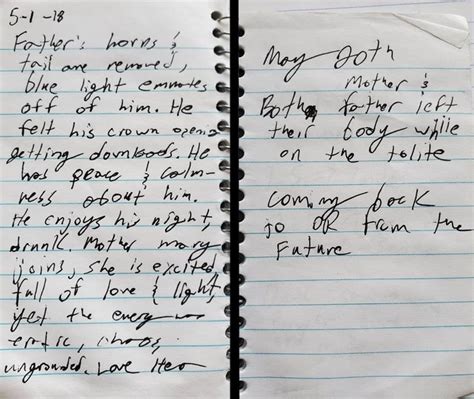 5-1-18
Father's horns &
tail are removed,
blue light emmates
off of him. He
felt his crown opening
getting downloads. He
has peace & calm-
ness about him.
He enjoys his night,
drunk. Mother mary
joins, she is excited
full of love & light,
yet the energy was
erotic, chaos,
ungrounded. Love Her
May 20th
Mother &
Both father left
their body while
on the tolite
coming back
to OR from the
Future